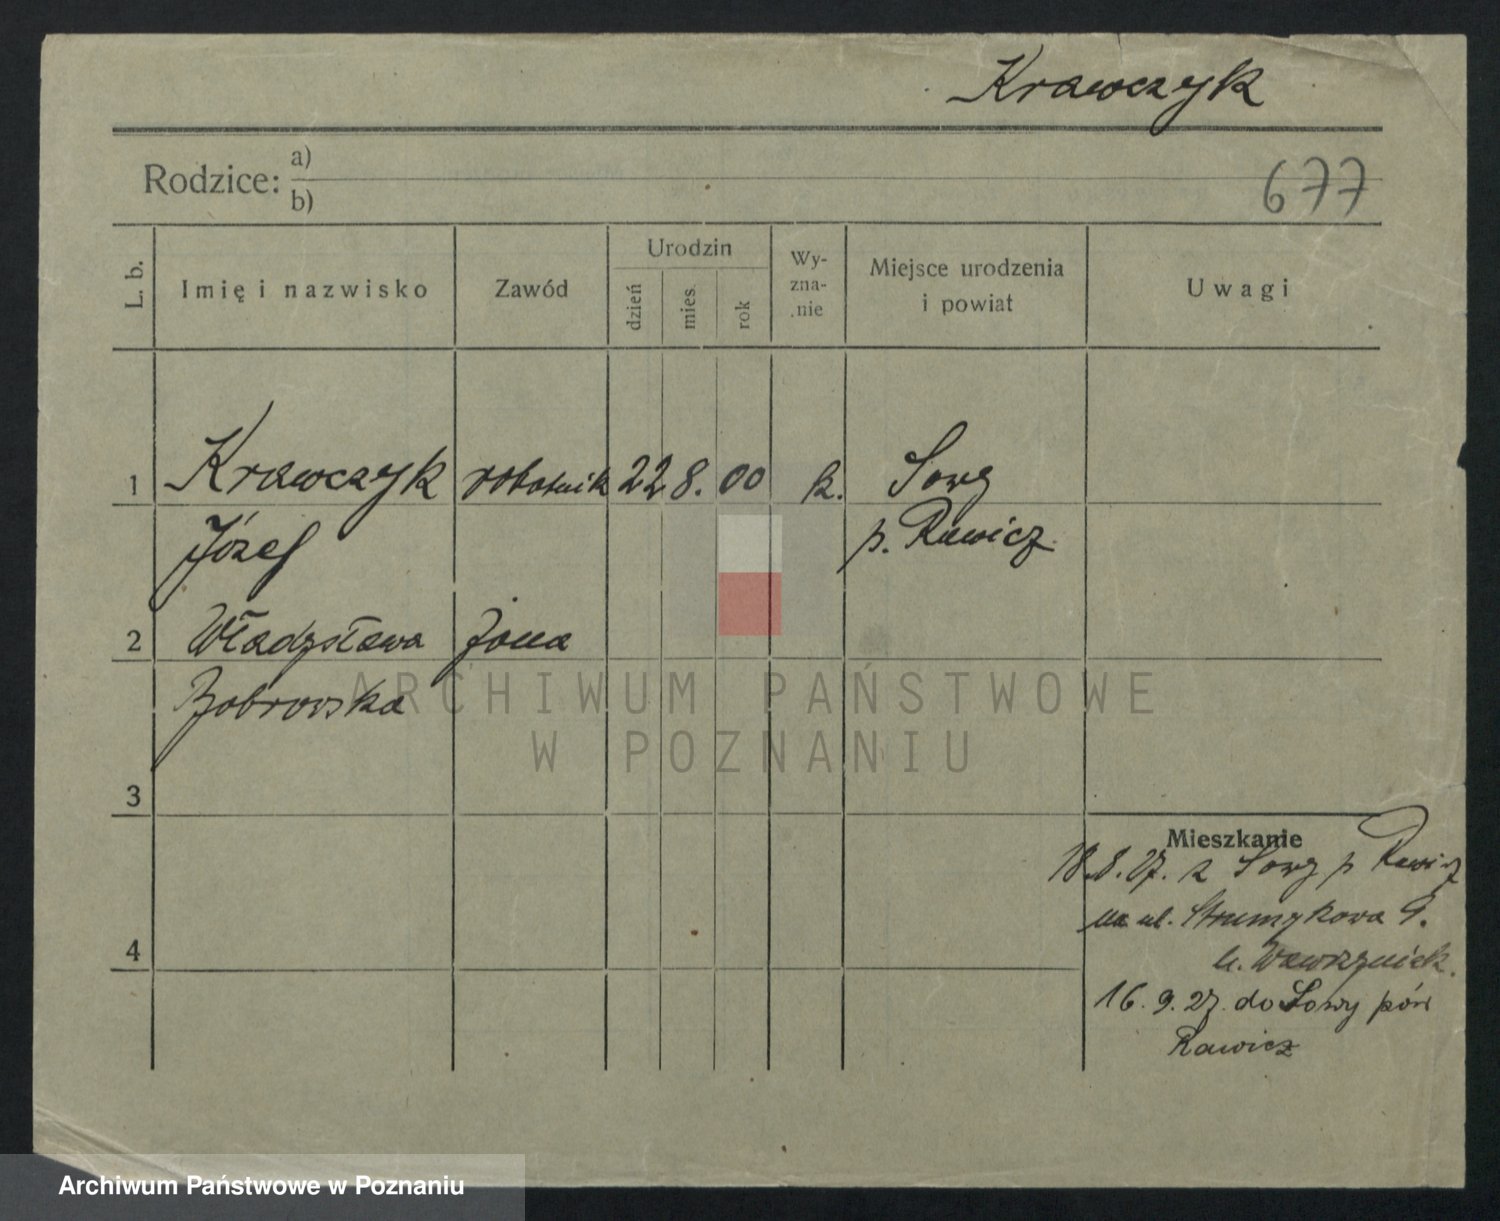 Krawczyk
Rodzice: a)
b)
677
L. b.
Imię i nazwisko
Zawód
Urodzin
dzień
mies.
rok
Wy-
zna-
nie
Miejsce urodzenia
i powiat
Uwagi
1 Krawczyk robotnik 22 8. 00 k. Sowy
Józef p. Rawicz
2 Władysława żona
Bobrowska
3
4
Mieszkanie
18.8.27. z Sowy p Rawicz
na ul. Strumykowa 9.
u. Wawrzyniak.
16.9.27. do Sowy pow
Rawicz
ARCHIWUM PAŃSTWOWE
W POZNANIU
Archiwum Państwowe w Poznaniu